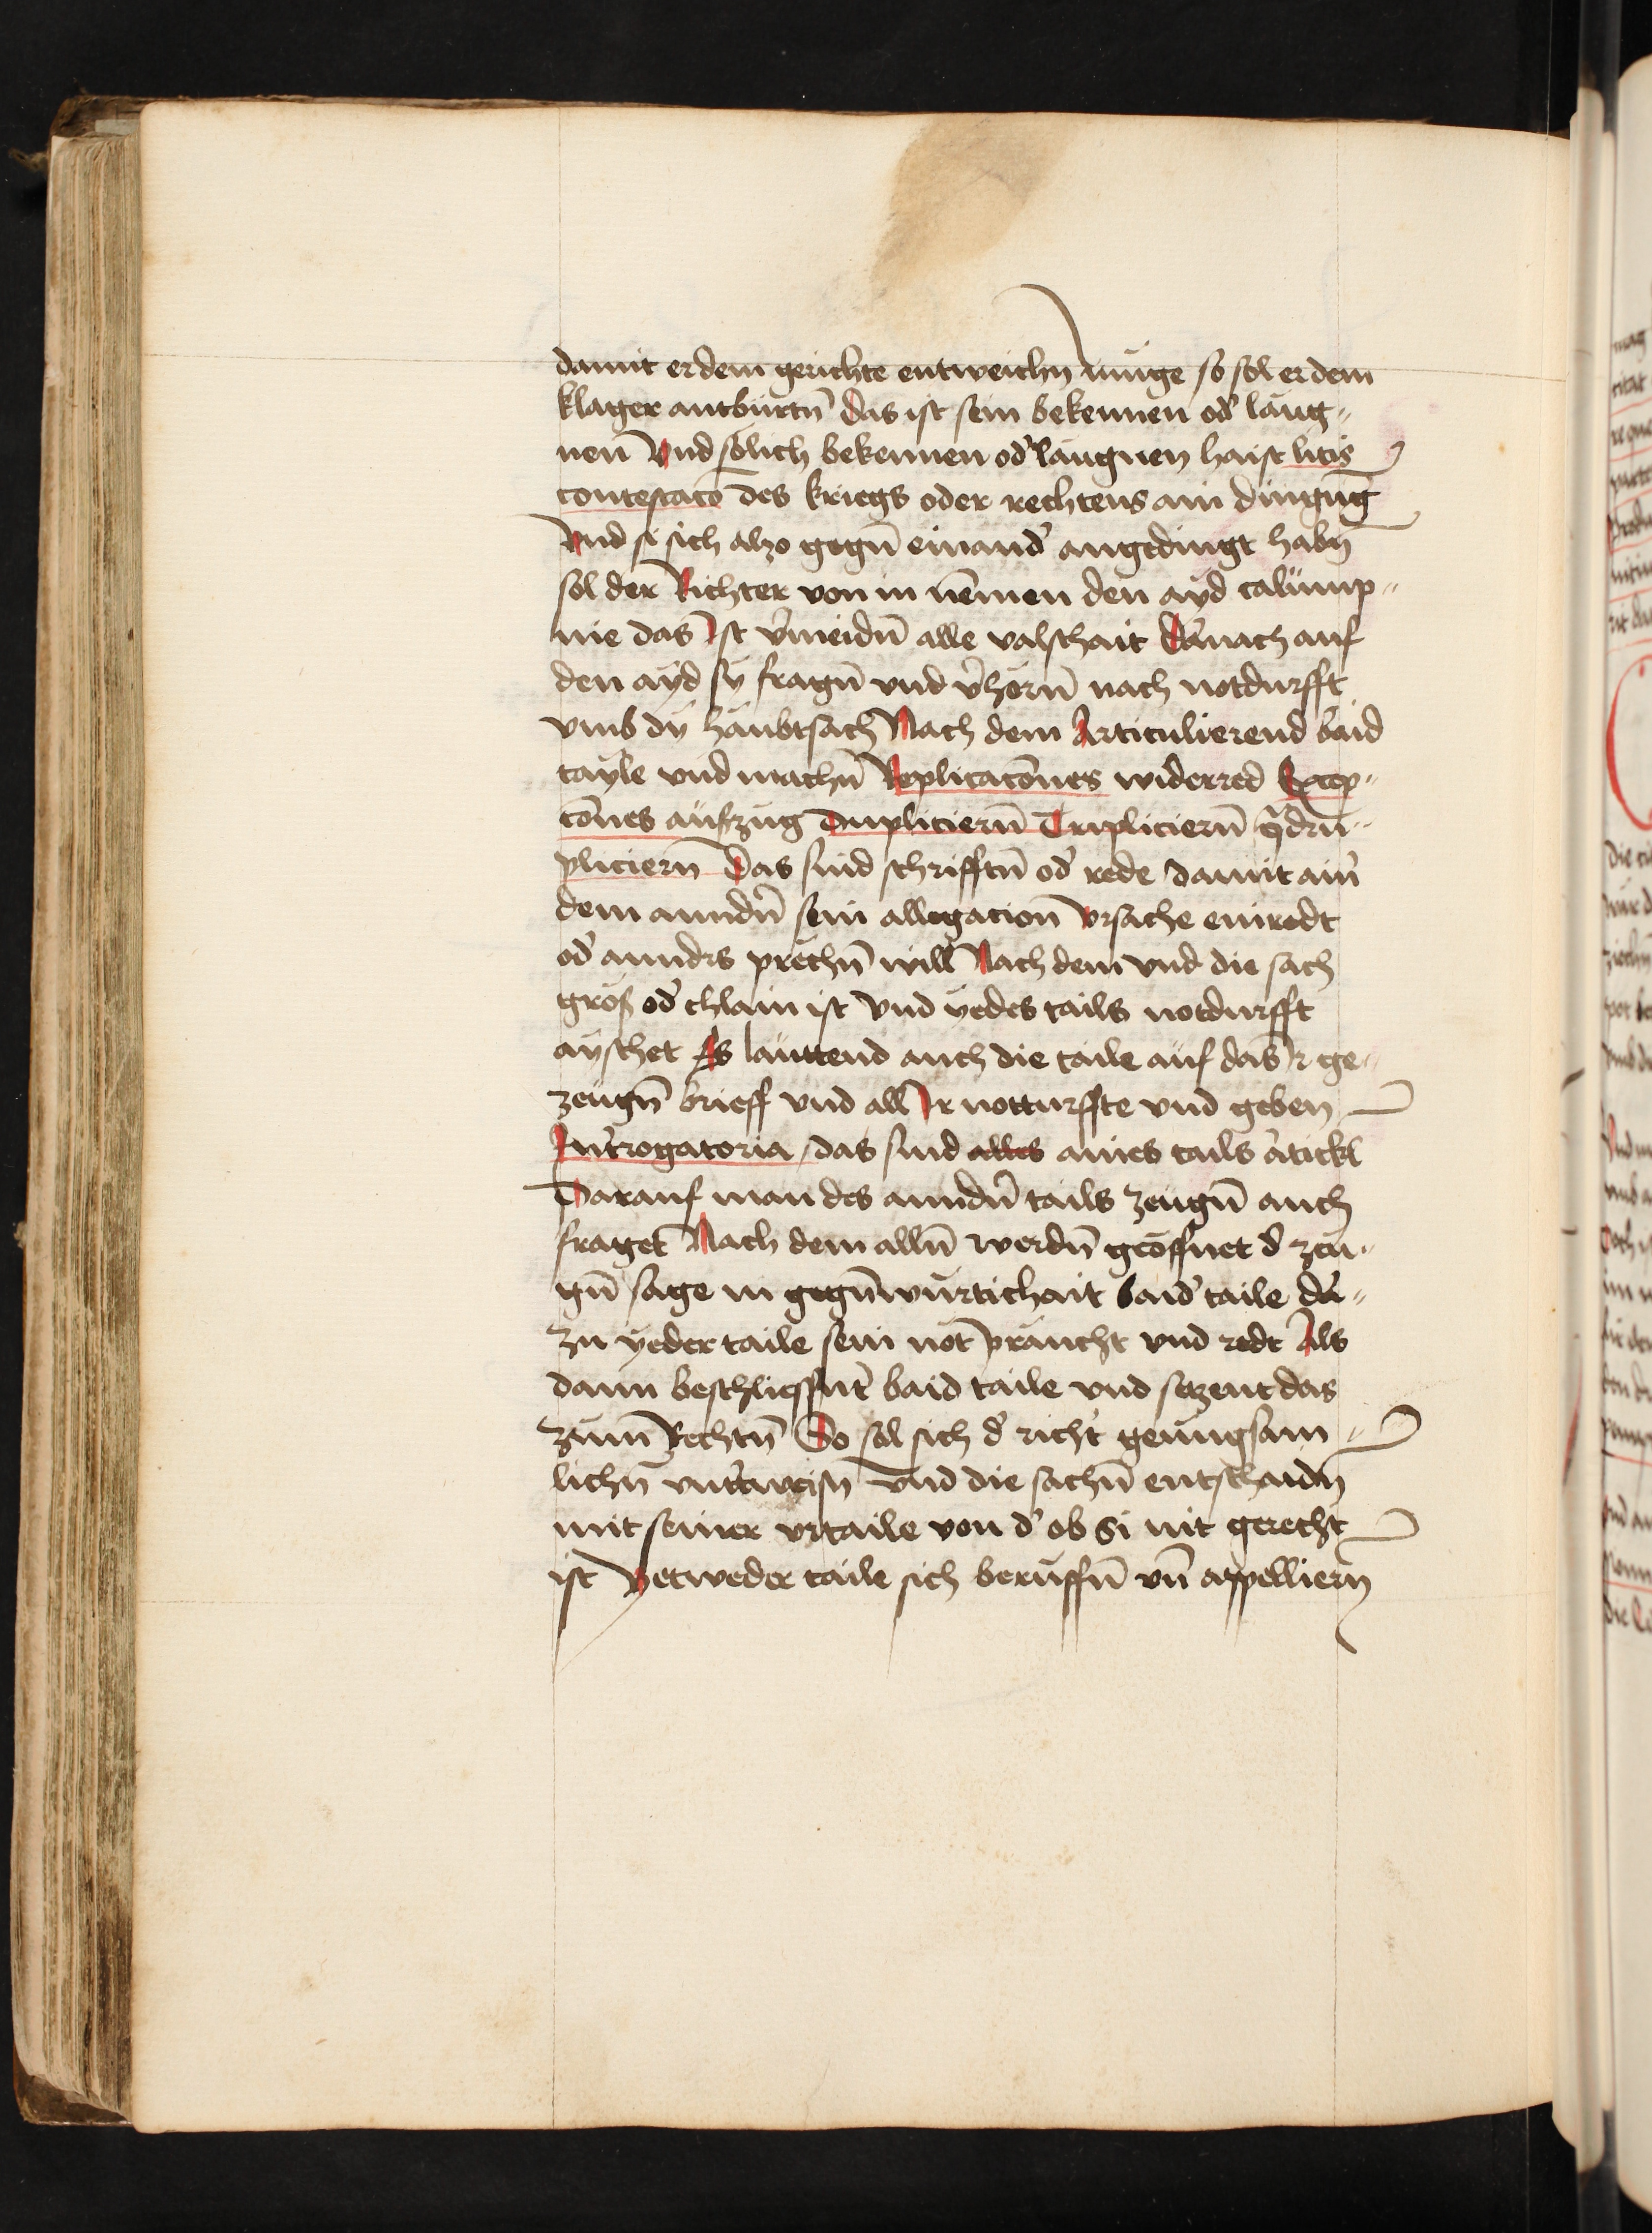 damit er dem gerichte entweichn̄ müge so sol er dem
klager antbürtn̄ das ist sein bekennen od̓ laug„
nen̄ Vnd sölich bekennen od̓ laugnen haist litis
contestacō des kriegs oder rechtens ain dingūg
Vnd si sich alzo gegn̄ einand̓ angedingt habn̄
sol der Richter von in nēmen den ayd calump„
nie das Ist v̓meidn̄ alle valschait Dar̓nach auf
den aÿd sÿ fragn̄ vnd v̓hörn̄ nach notdurfft
vmb dÿ haubtsach Nach dem Articulierend baid
tayle vnd machn̄ Replicacōnes widerred Excep„
cōnes aufzug Dupliciern̄ Tripliciern̄ Qᵃdru„
pliciern̄ Das sind schrifftn̄ od̓ rede damit ain̓
dem anndn̓ sein allegacion̄ vrsache einredt
od̓ annders prechn̄ will Nach dem vnd die sach
groß od̓ chlain ist Vnd yedes tails notdurfft
ayschet Es lauttend auch die taile auf das Ir ge„
zeugn̄ brieff vnd all Ir notturffte vnd geben
Int̓rogatoria das sind alles aines tails a̓tickl
Darauf man des anndn̓ tails zeugn̄ auch
fraget Nach dem alln̄ werdn̄ geöffnet d̓ zeu„
gn̄ sage in gegn̄würtichait baid̓ taile da„
zu yeder taile sein not praucht vnd redt Als
dann beschliessent baid taile vnd setzent das
zum Rechtn̄ So sol sich d̓ richt̓ genugsam„
lichn̄ vnt̓weisn̄ Vnd die sachn̄ entschaidn̄
mit seiner vrtaile von d̓ ob Si nit gerecht
ist Yetweder taile sich beruffn̄ vn̄ appelliern̄